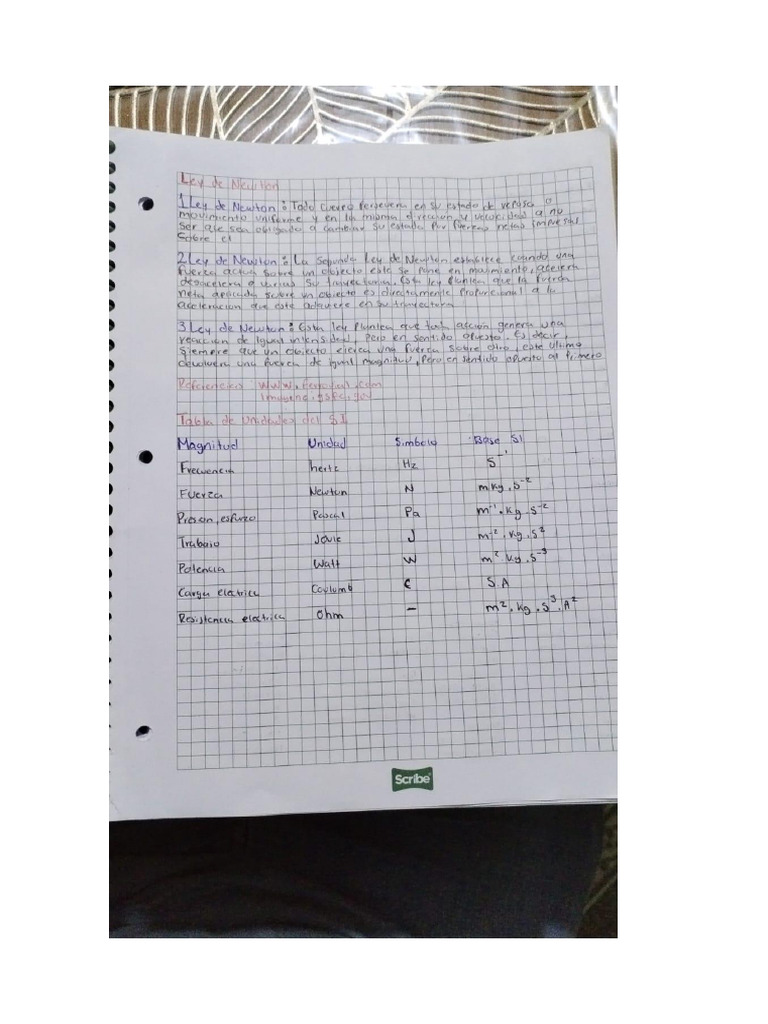 Ley de Newton
1 Ley de Newton: Todo cuerpo persevera en su estado de reposo o
movimiento uniforme y en la misma direccion y velocidad a no
ser que sea obligado a cambiar su estado por fuerzas netas impuesas
sobre el
2 Ley de Newton: La segunda Ley de Newton establece cuando una
fuerza actua sobre un objecto este se pone en movimiento, acelera
desacelera o varias su trayectoria. Esta ley plantea que la fuerza
neta aplicada sobre un objecto es directamente proporcional a la
aceleracion que este adquiere en su trayectoria
3 Ley de Newton: Esta ley plantea que toda acción genera una
reaccion de igual intensidad, pero en sentido opuesto. Es decir,
siempre que un objecto ejerza una fuerza sobre otro, este ultimo
devolvera una fuerza de igual magnitud, pero en sentido opuesto al primero
Referencias: www.
Tabla de unidades del SI
Magnitud Unidad Simbolo Base SI
Frecuencia hertz Hz S⁻¹
Fuerza Newton N mkg.s⁻²
Presion, esfuerzo Pascal Pa m⁻¹.kg.s⁻²
Trabajo Joule J m⁻².kg.s²
Potencia Watt W m² kg.s⁻³
Carga electrica Coulomb C S.A
Resistencia electrica Ohm – m².kg.s³.A²
Scribe